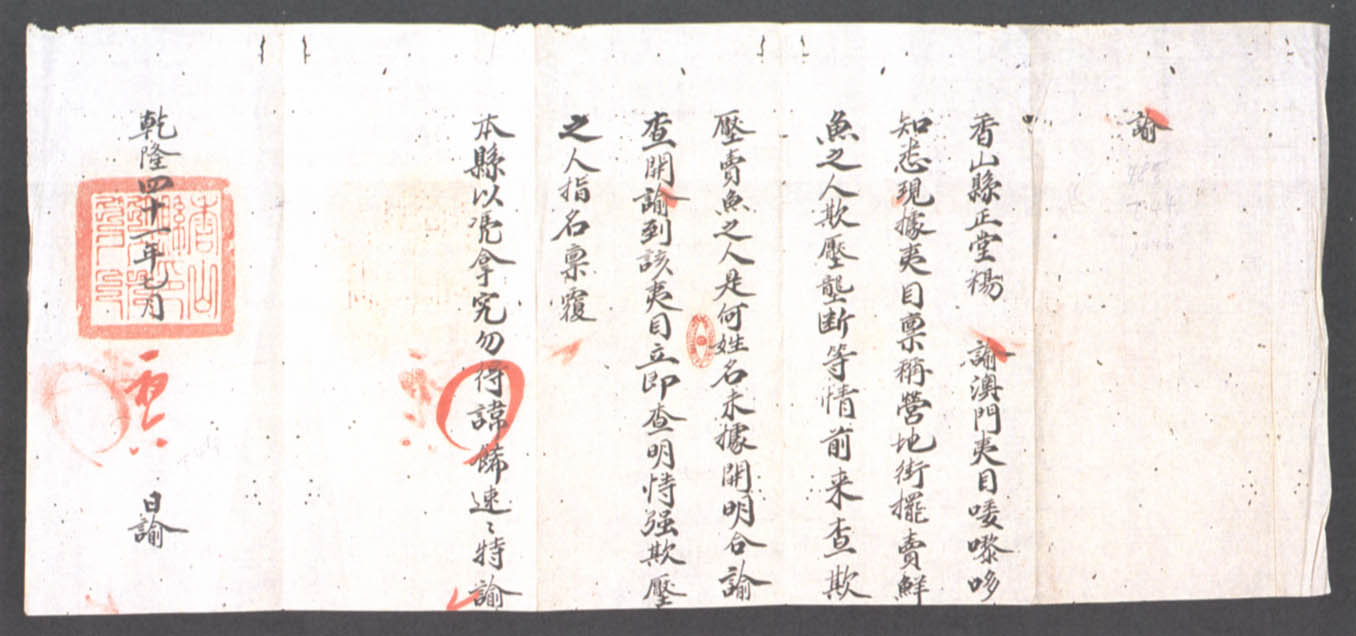 諭
香山縣正堂楊　諭澳門夷目唩嚟哆
知悉現據夷目禀稱營地街擺賣鮮
魚之人欺壓壟断等情前来查欺
壓賣魚之人是何姓名未據開明合諭
查開諭到該夷目立即查明恃强欺壓
之人指名禀覆
本縣以凭拿究勿得諱飾速〻特諭
乾隆四十一年七月
日諭